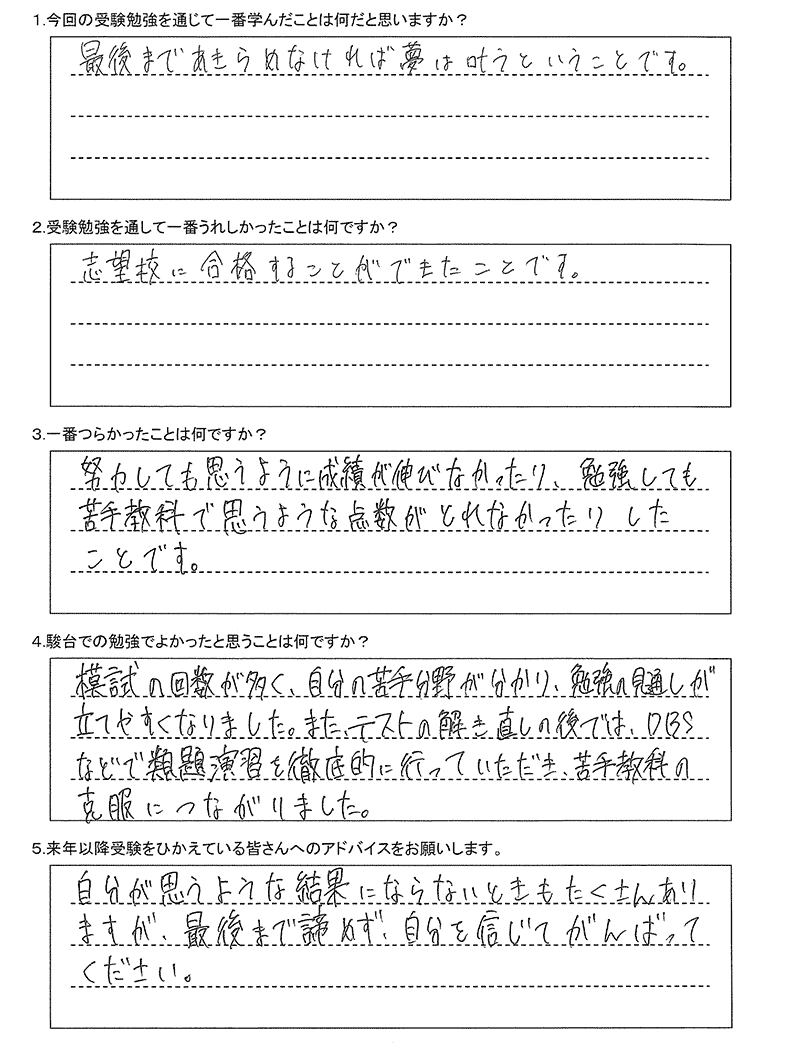 1.今回の受験勉強を通じて一番学んだことは何だと思いますか？
最後まであきらめなければ夢は叶うということです。
2.受験勉強を通して一番うれしかったことは何ですか？
志望校に合格することができたことです。
3.一番つらかったことは何ですか？
努力しても思うように成績が伸びなかったり、勉強しても
苦手教科で思うような点数がとれなかったりした
ことです。
4.駿台での勉強でよかったと思うことは何ですか？
模試の回数が多く、自分の苦手分野が分かり、勉強の見通しが
立てやすくなりました。また、テストの解き直しの後では、DBS
などで類題演習を徹底的に行っていただき、苦手教科の
克服につながりました。
5.来年以降受験をひかえている皆さんへのアドバイスをお願いします。
自分が思うような結果にならないときもたくさんあり
ますが、最後まで諦めず、自分を信じてがんばって
ください。